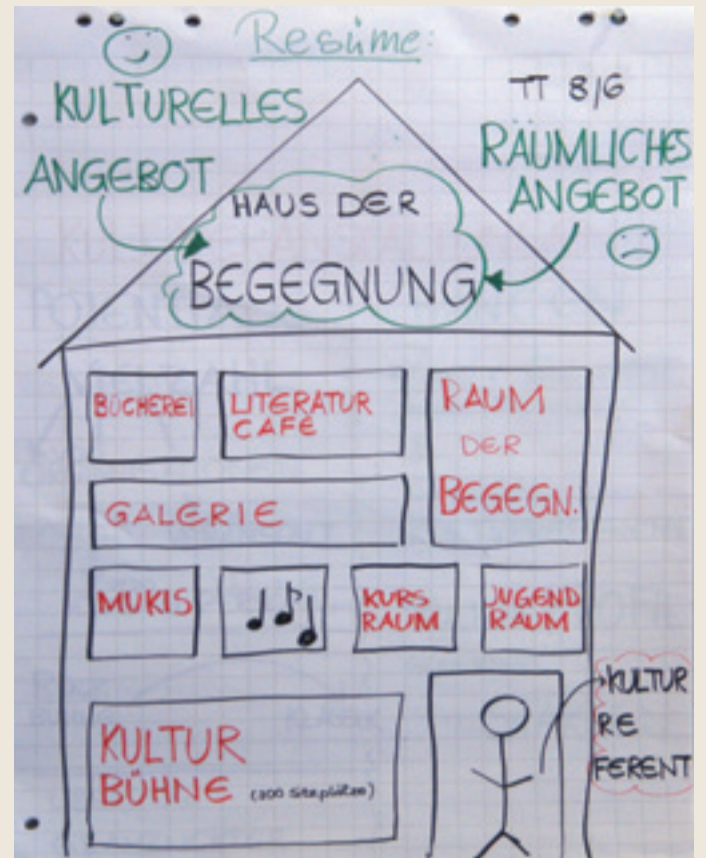 Resüme:
KULTURELLES
ANGEBOT
TT 8/6
RÄUMLICHES
ANGEBOT
HAUS DER
BEGEGNUNG
BÜCHEREI
LITERATUR
CAFÉ
RAUM
DER
BEGEGN.
GALERIE
MUKIS
KURS
RAUM
JUGEND
RAUM
KULTUR
BÜHNE (200 Sitzplätze)
KULTUR
RE
FERENT